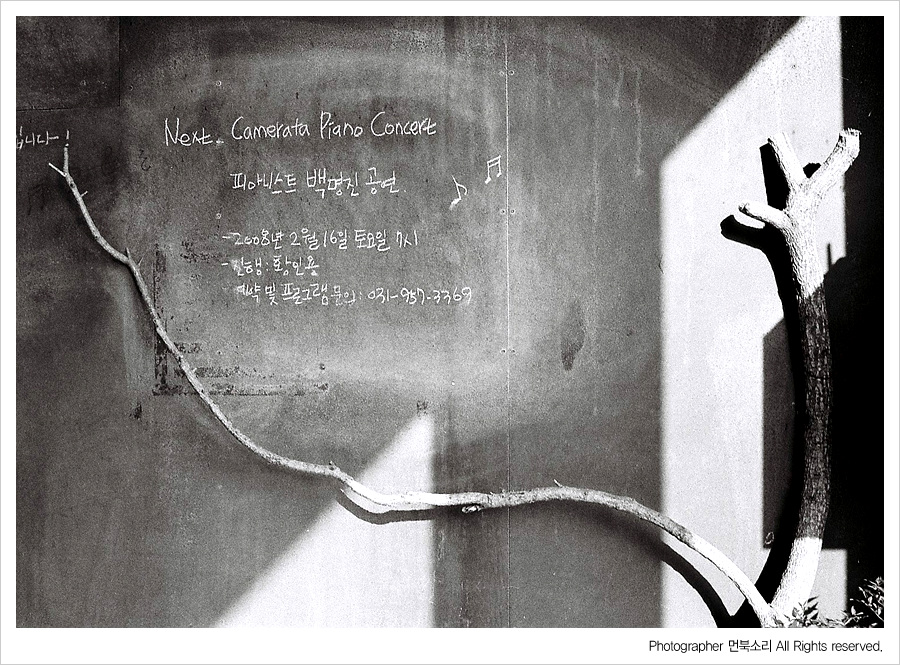 입니다!
Next. Camerata Piano Concert
피아니스트 백명진 공연.
-2008년 2월 16일 토요일 7시
-진행: 황인용
예약 및 프로그램 문의: 031-957-3369
Photographer 먼북소리 All Rights reserved.